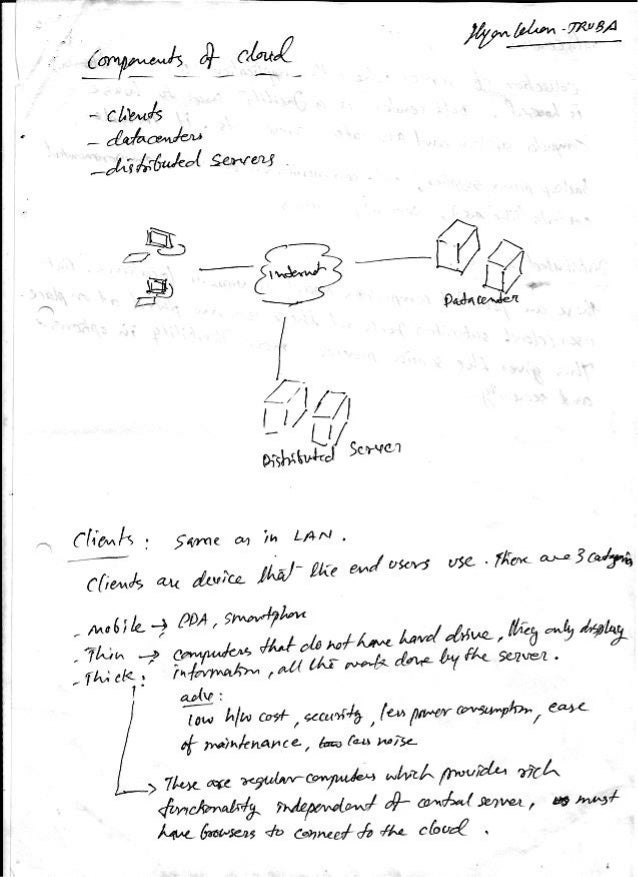 TRUBA
Components of cloud
- Clients
- datacenters
- distributed servers.
internet
Datacenter
Distributed Server
Clients : Same as in LAN.
Clients are device that the end users use. There are 3 categories
- mobile → PDA, smartphone
- Thin → computers that do not have hard drive, they only display
- Thick : information, all the work done by the server.
adv :
low h/w cost, security, less power consumption, ease
of maintenance, less noise
→ These are regular computers which provides rich
functionality independent of central server, must
have browsers to connect to the cloud.